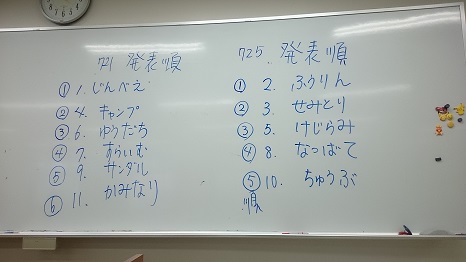 721 発表順
① 1. じんべえ
② 4. キャンプ
③ 6. ゆうだち
④ 7. すらいむ
⑤ 9. サンダル
⑥ 11. かみなり
725 発表順
① 2. ふうりん
② 3. せみとり
③ 5. けじらみ
④ 8. なつばて
⑤ 10. ちゅうぶ
順